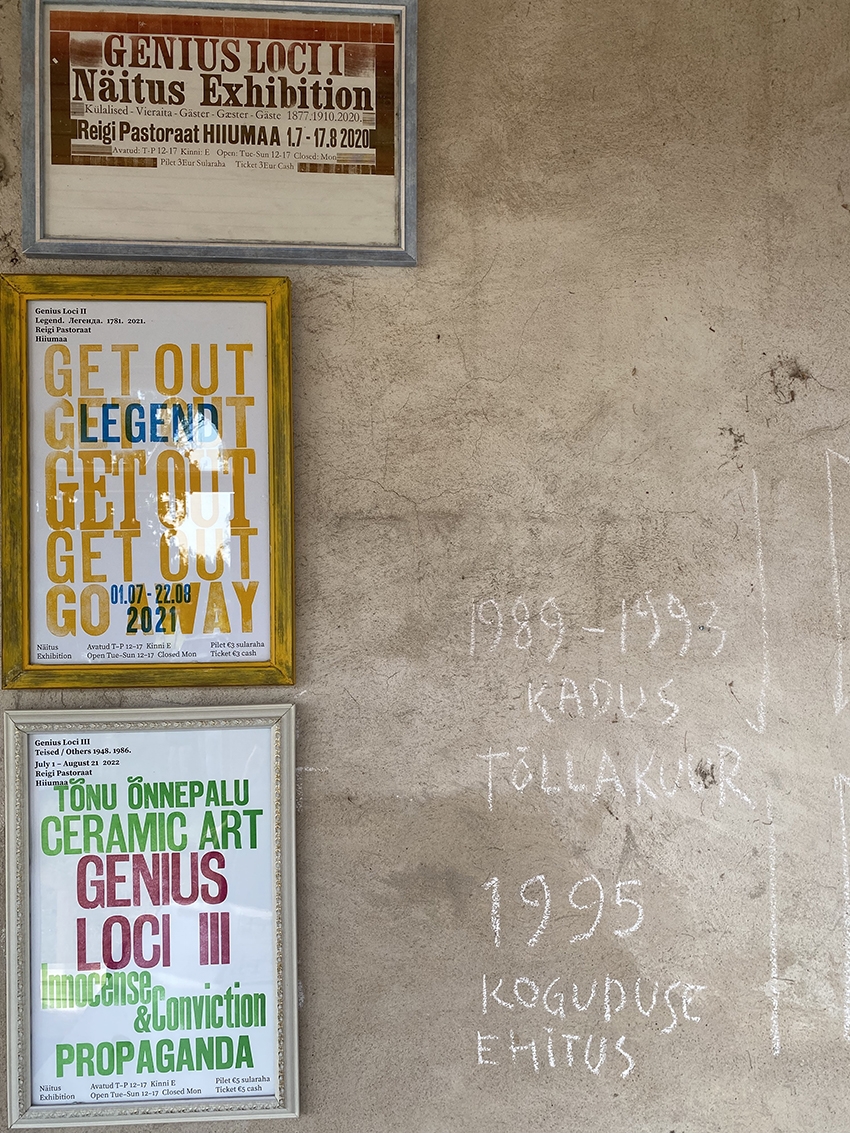 GENIUS LOCI I
Näitus Exhibition
Külalised - Vieraita - Gäster - Gæster - Gäste 1877.1910.2020.
Reigi Pastoraat HIIUMAA 1.7 - 17.8 2020
Avatud: T-P 12-17 Kinni: E Open: Tue-Sun 12-17 Closed: Mon
Pilet 3Eur Sularaha Ticket 3 Eur Cash
Genius Loci II
Legend. Легенда. 1781. 2021.
Reigi Pastoraat
Hiiumaa
GET OUT
GET OUT
LEGEND
GET OUT
GET OUT
GO AWAY
01.07 - 22.08
2021
Näitus
Exhibition
Avatud T–P 12–17 Kinni E
Open Tue–Sun 12–17 Closed Mon
Pilet €3 sularaha
Ticket €3 cash
Genius Loci III
Teised / Others 1948. 1986.
July 1 – August 21 2022
Reigi Pastoraat
Hiiumaa
TÕNU ÕNNEPALU
CERAMIC ART
GENIUS
LOCI III
Innocense
&Conviction
PROPAGANDA
Näitus
Exhibition
Avatud T–P 12–17 Kinni E
Open Tue–Sun 12–17 Closed Mon
Pilet €5 sularaha
Ticket €5 cash
1989 – 1993
KADUS
TÕLLAKUUR
1995
KOGUDUSE
EHITUS